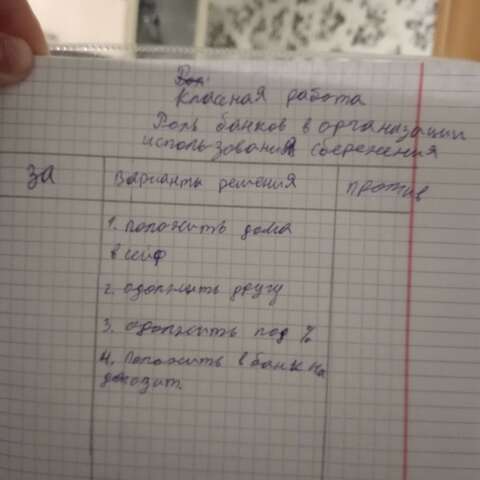 Классная работа
Роль банков в организации
использования сбережения
за
Варианты решения
против
1. положить дома
в сейф
2. одолжить другу
3. одолжить под %
4. Положить в банк на
депозит.